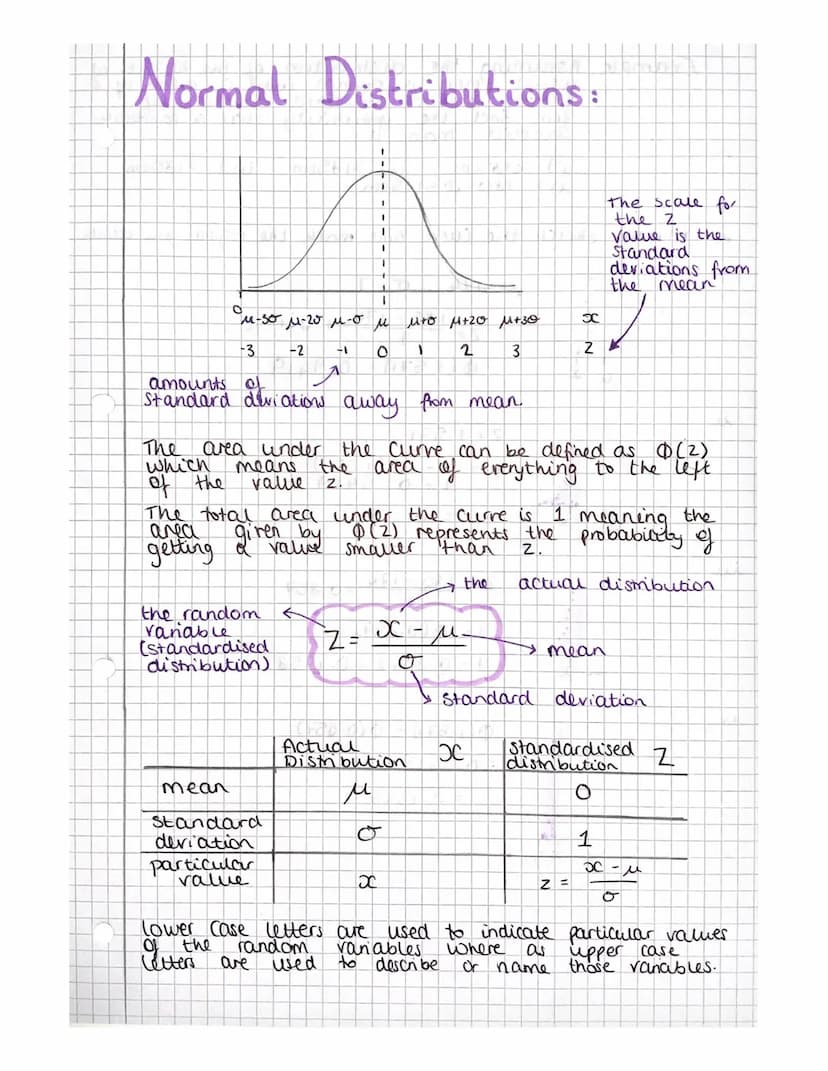 Normal Distributions:
The scale for
the z
value is the
standard
deviations from
the mean
0
μ-3σ μ-2σ μ-σ μ μ+σ μ+2σ μ+3σ x
-3 -2 -1 0 1 2 3 z
amounts of
standard deviations away from mean.
The area under the curve can be defined as Φ(z)
which means the area of everything to the left
of the value z.
The total area under the curve is 1 meaning the
area given by Φ(z) represents the probability of
getting a value smaller than z.
the actual distribution
the random
variable
(standardised
distribution)
z = x - μ
σ
mean
standard deviation
Actual
Distribution x
standardised
distribution z
mean μ 0
standard
deviation σ 1
particular
value x z = x - μ
σ
lower case letters are used to indicate particular values
of the random variables where as upper case
letters are used to describe or name those variables.